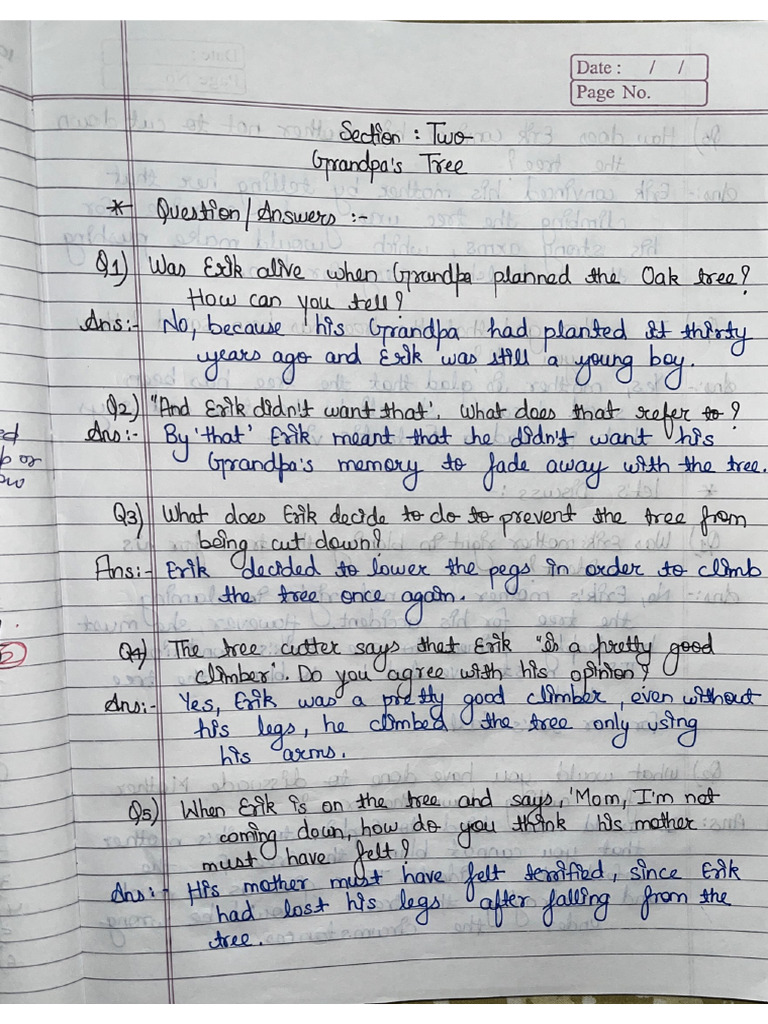 Date : / /
Page No.
Section : Two
Grandpa's Tree
* Question/Answers :-
Q1) Was Erik alive when Grandpa planned the Oak tree?
How can you tell?
Ans:- No, because his Grandpa had planted it thirty
years ago and Erik was still a young boy.
Q2) "And Erik didn't want that'. What does that refer to?
Ans:- By 'that' Erik meant that he didn't want his
Grandpa's memory to fade away with the tree.
Q3) What does Erik decide to do to prevent the tree from
being cut down?
Ans:- Erik decided to lower the pegs in order to climb
the tree once again.
Q4) The tree cutter says that Erik "is a pretty good
climber". Do you agree with his opinion?
Ans:- Yes, Erik was a pretty good climber, even without
his legs, he climbed the tree only using
his arms.
Q5) When Erik is on the tree and says, 'Mom, I'm not
coming down, how do you think his mother
must have felt?
Ans:- His mother must have felt terrified, since Erik
had lost his legs after falling from the
tree.